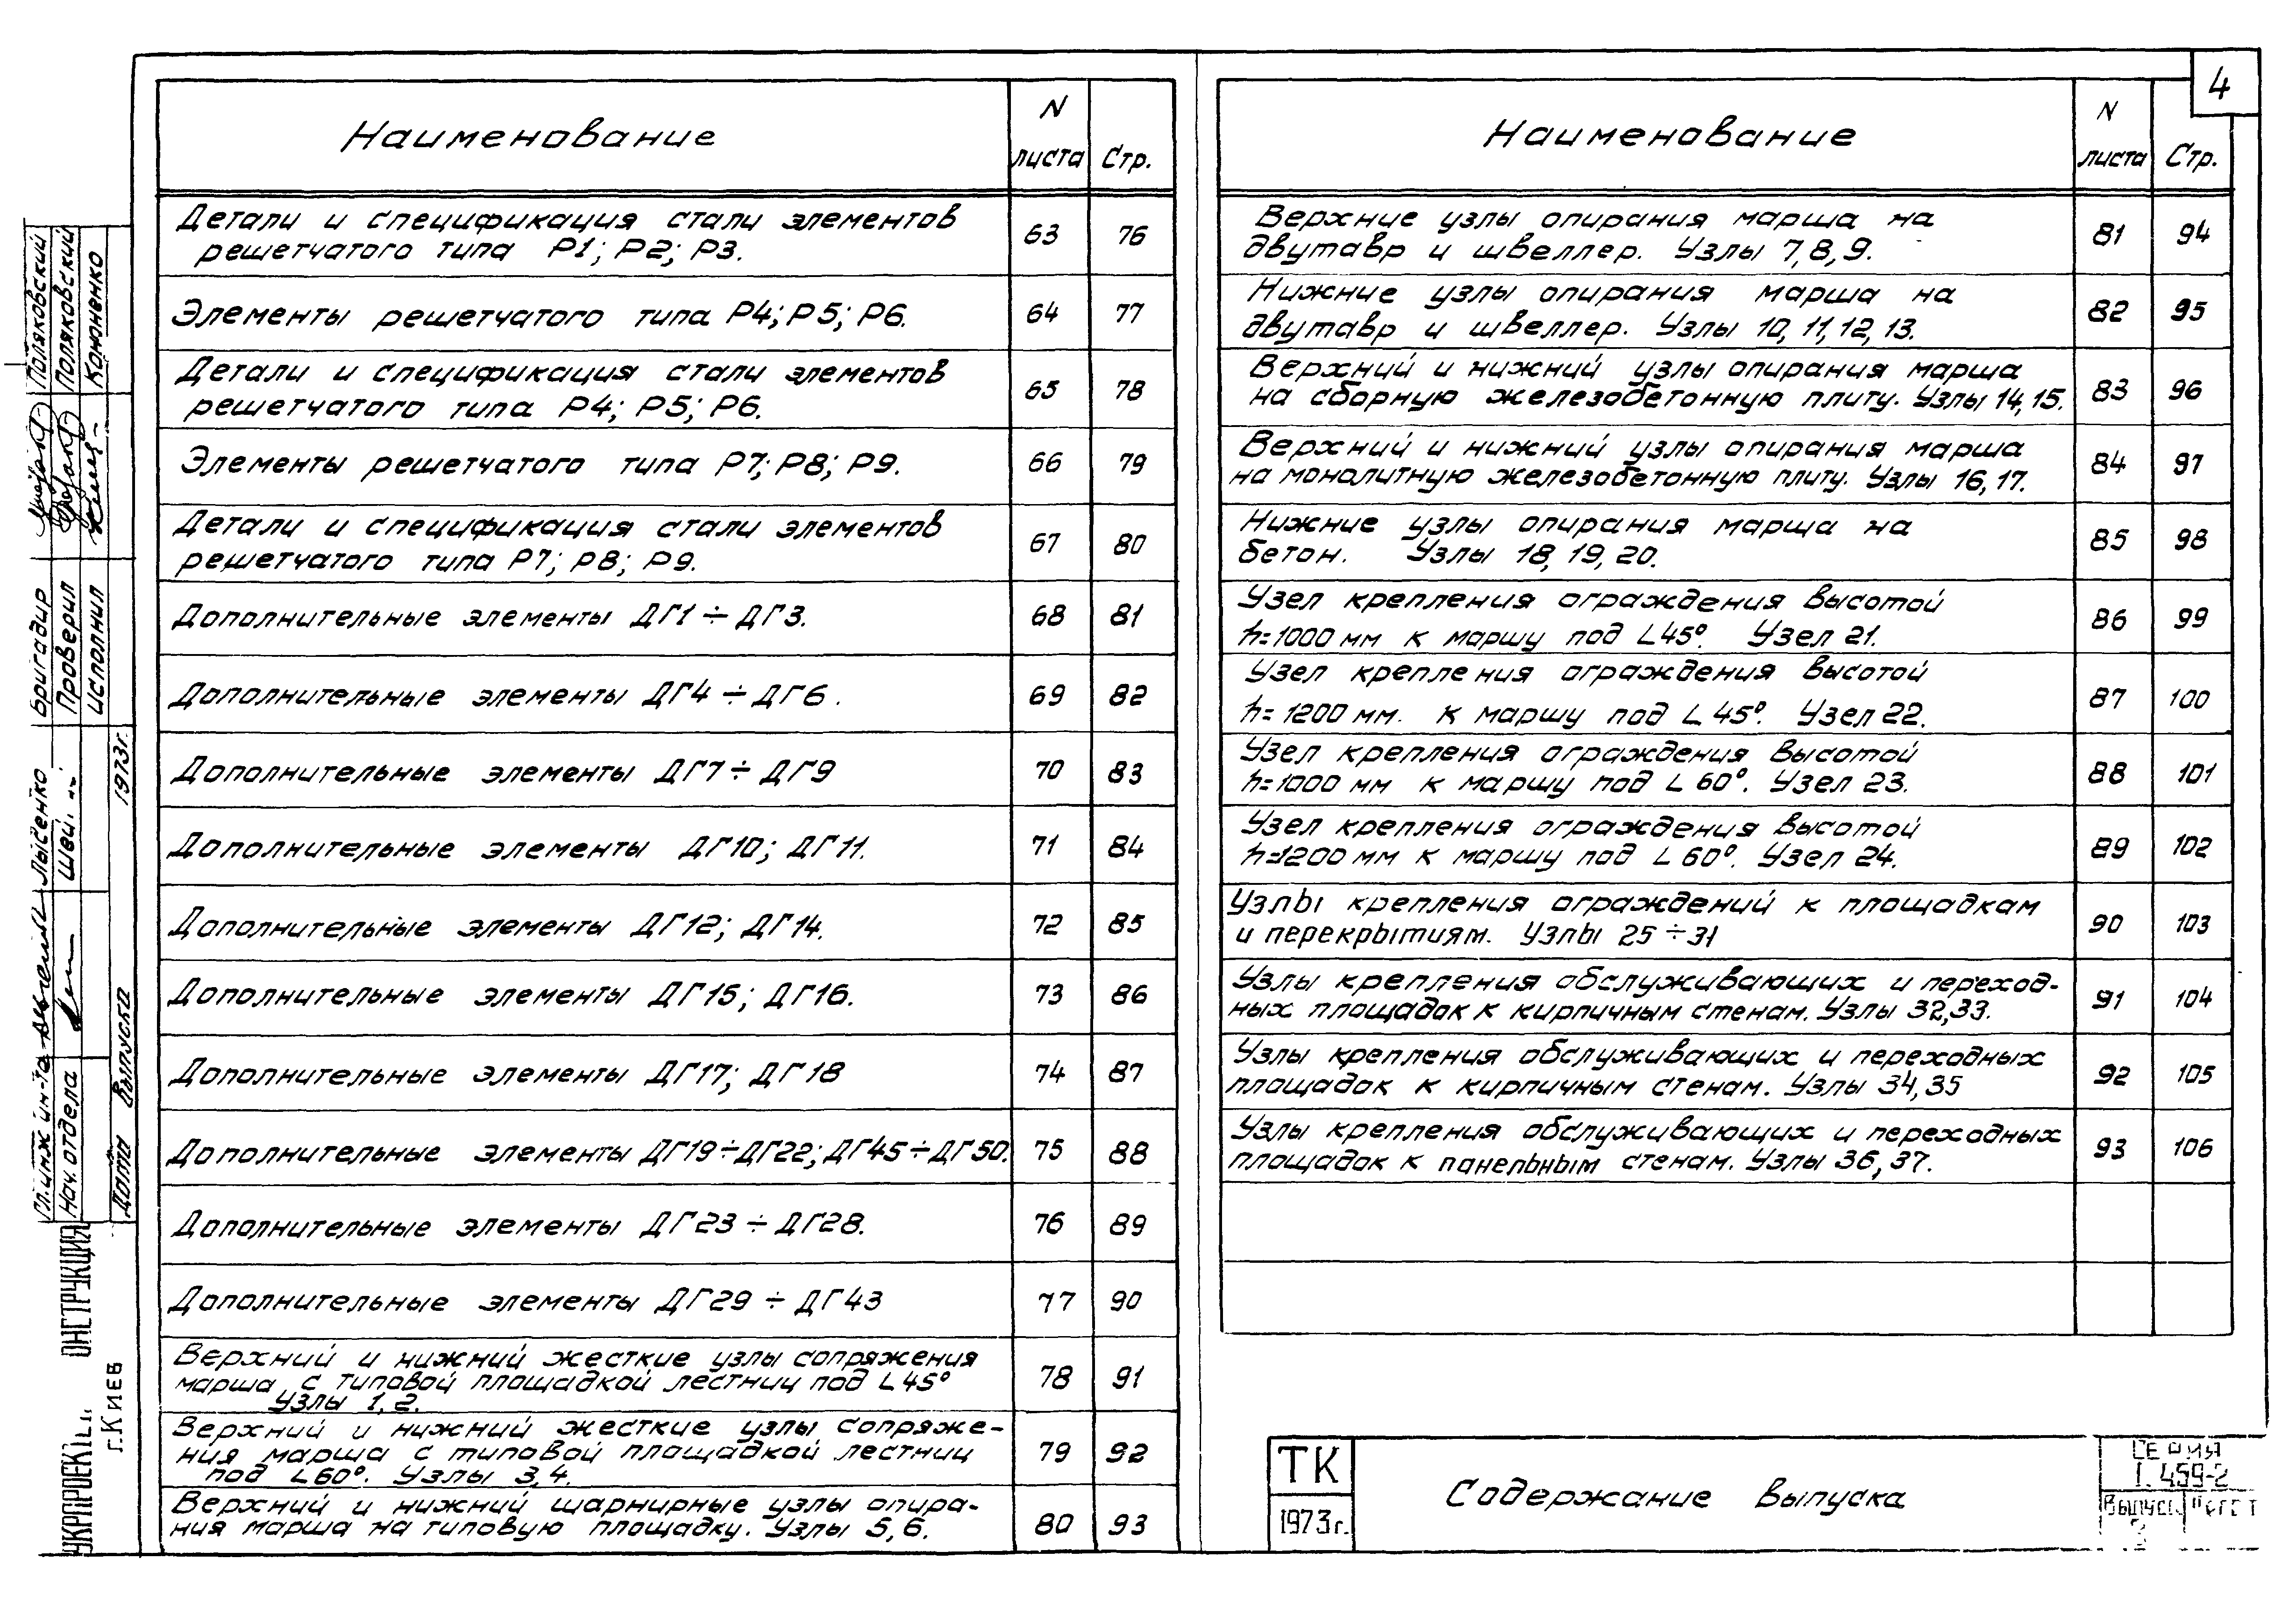 4
Наименование
N листа
Стр.
Детали и спецификация стали элементов
решетчатого типа Р1; Р2; Р3.
63
76
Элементы решетчатого типа Р4; Р5; Р6.
64
77
Детали и спецификация стали элементов
решетчатого типа Р4; Р5; Р6.
65
78
Элементы решетчатого типа Р7; Р8; Р9.
66
79
Детали и спецификация стали элементов
решетчатого типа Р7; Р8; Р9.
67
80
Дополнительные элементы ДГ1 ÷ ДГ3.
68
81
Дополнительные элементы ДГ4 ÷ ДГ6.
69
82
Дополнительные элементы ДГ7 ÷ ДГ9
70
83
Дополнительные элементы ДГ10; ДГ11.
71
84
Дополнительные элементы ДГ12; ДГ14.
72
85
Дополнительные элементы ДГ15; ДГ16.
73
86
Дополнительные элементы ДГ17; ДГ18
74
87
Дополнительные элементы ДГ19÷ДГ22; ДГ45÷ДГ50.
75
88
Дополнительные элементы ДГ23 ÷ ДГ28.
76
89
Дополнительные элементы ДГ29 ÷ ДГ43
77
90
Верхний и нижний жесткие узлы сопряжения
марша с типовой площадкой лестниц под ∠45°
Узлы 1, 2.
78
91
Верхний и нижний жесткие узлы сопряже-
ния марша с типовой площадкой лестниц
под ∠60°. Узлы 3,4.
79
92
Верхний и нижний шарнирные узлы опира-
ния марша на типовую площадку. Узлы 5,6.
80
93
Наименование
N листа
Стр.
Верхние узлы опирания марша на
двутавр и швеллер. Узлы 7,8,9.
81
94
Нижние узлы опирания марша на
двутавр и швеллер. Узлы 10, 11, 12, 13.
82
95
Верхний и нижний узлы опирания марша
на сборную железобетонную плиту. Узлы 14, 15.
83
96
Верхний и нижний узлы опирания марша
на монолитную железобетонную плиту. Узлы 16, 17.
84
97
Нижние узлы опирания марша на
бетон. Узлы 18, 19, 20.
85
98
Узел крепления ограждения высотой
h=1000 мм к маршу под ∠45°. Узел 21.
86
99
Узел крепления ограждения высотой
h=1200 мм. к маршу под ∠45°. Узел 22.
87
100
Узел крепления ограждения высотой
h=1000 мм к маршу под ∠60°. Узел 23.
88
101
Узел крепления ограждения высотой
h=1200 мм к маршу под ∠60°. Узел 24.
89
102
Узлы крепления ограждений к площадкам
и перекрытиям. Узлы 25 ÷ 31
90
103
Узлы крепления обслуживающих и переход-
ных площадок к кирпичным стенам. Узлы 32,33.
91
104
Узлы крепления обслуживающих и переходных
площадок к кирпичным стенам. Узлы 34,35
92
105
Узлы крепления обслуживающих и переходных
площадок к панельным стенам. Узлы 36,37.
93
106
ТК
1973г.
Содержание выпуска
СЕРИЯ
1.459-2
Выпуск
Лист
Бригадир
Поляковский
Проверил
Поляковский
Исполнил
Кононенко
Гл.инж ин-та
Лысенко
Нач. отдела
Швей.
Дата выпуска
1973г.
г.Киев